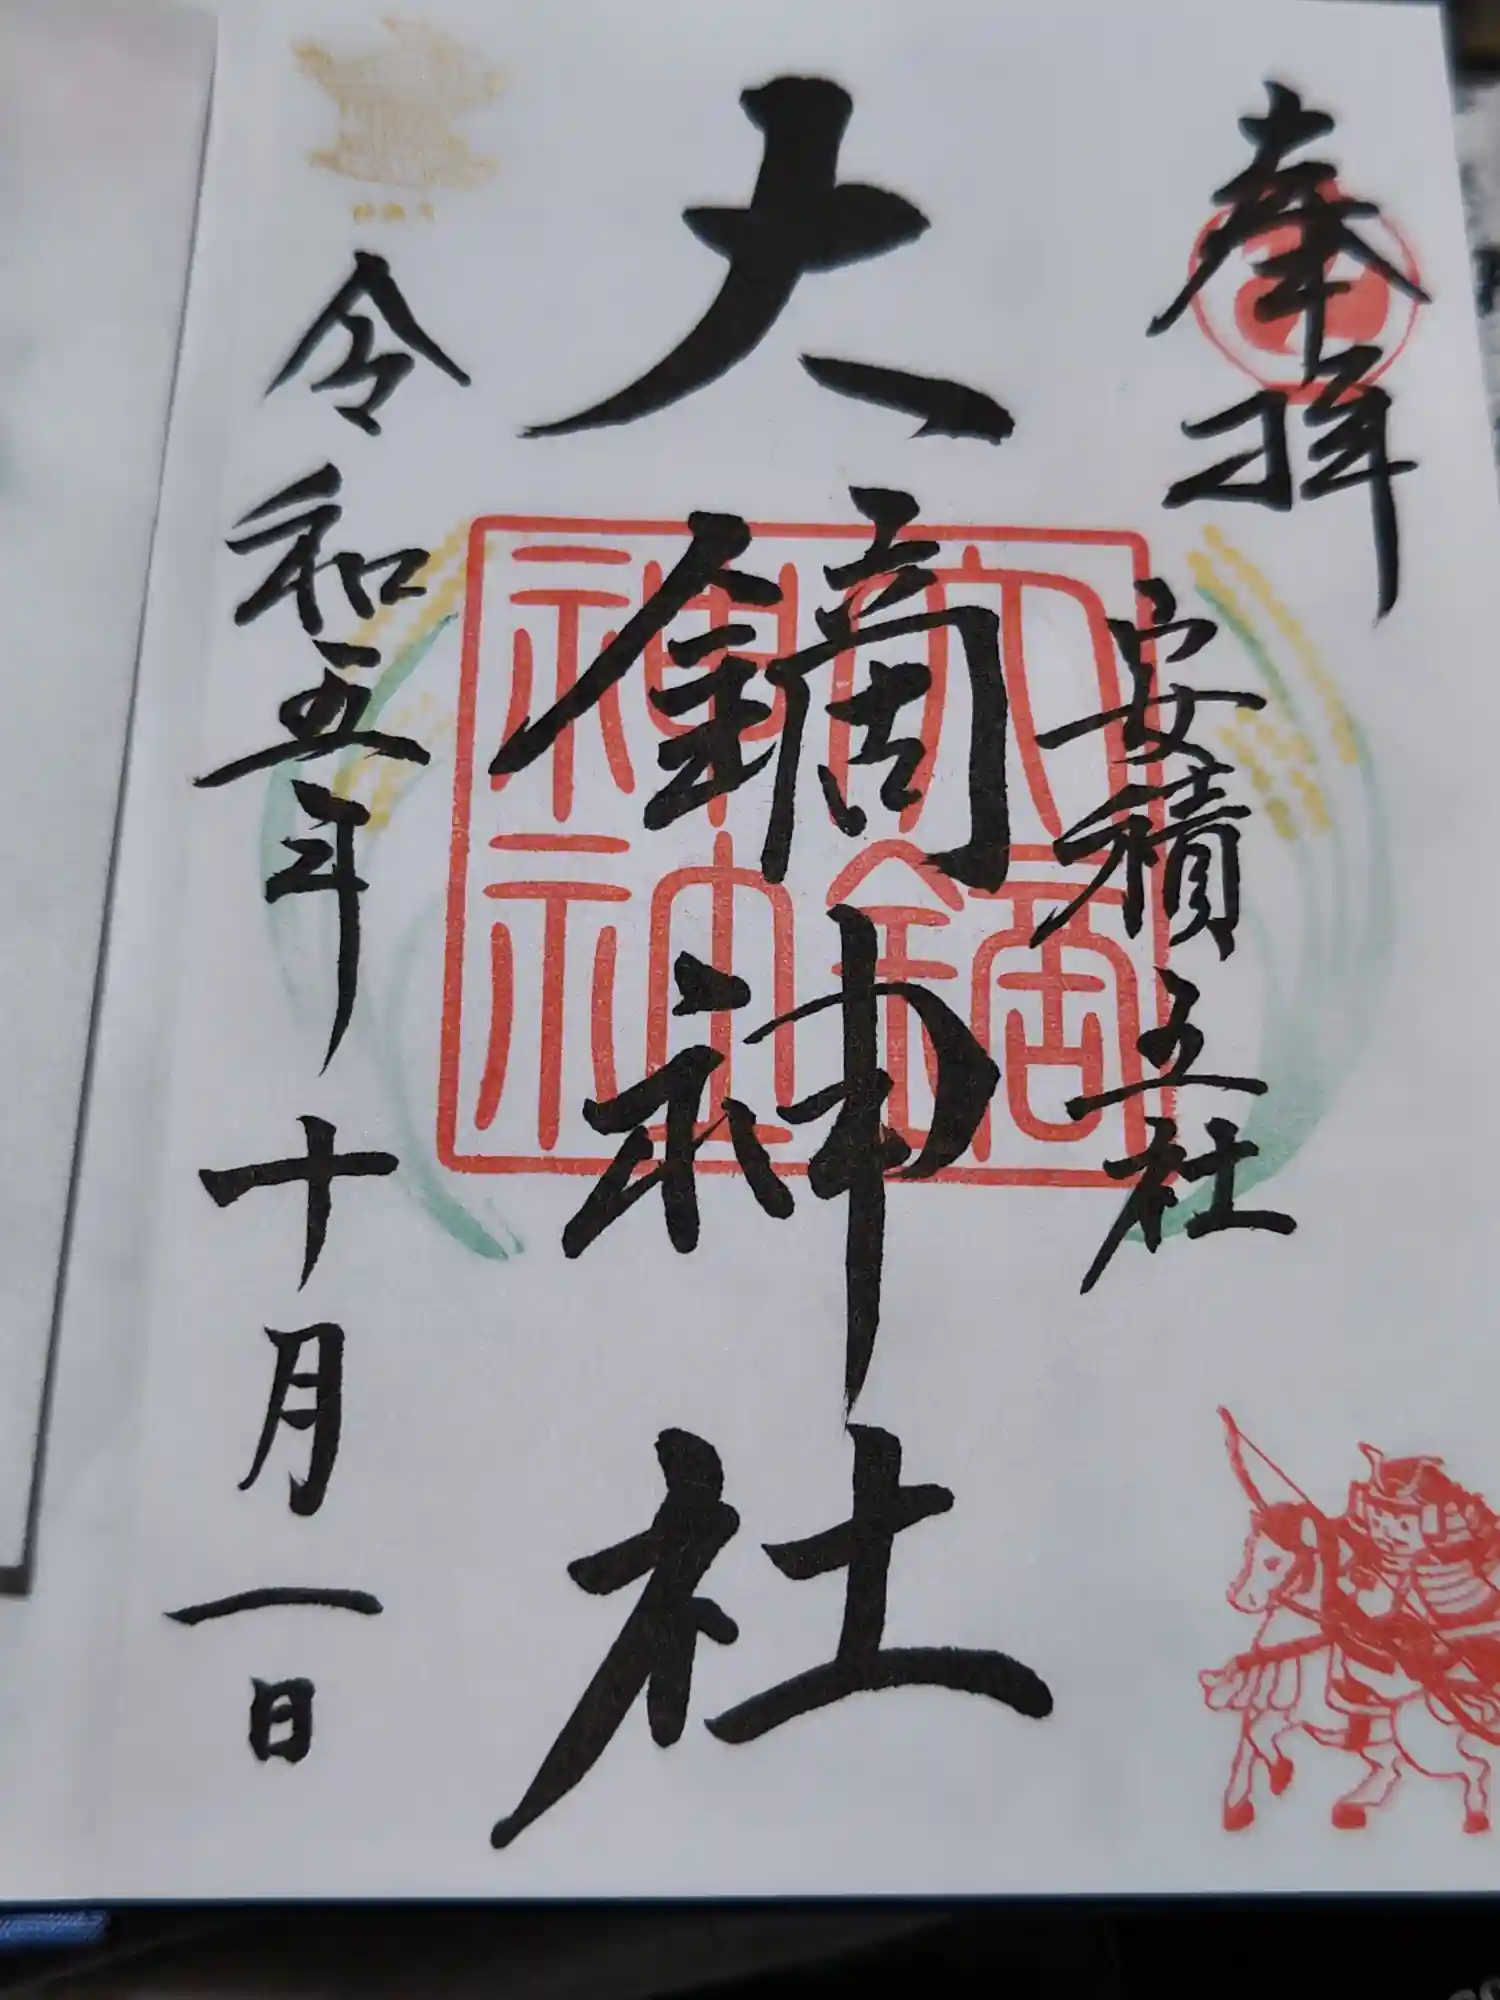 奉拝
安積五社
大鏑神社
大鏑
神社
令和五年十月一日